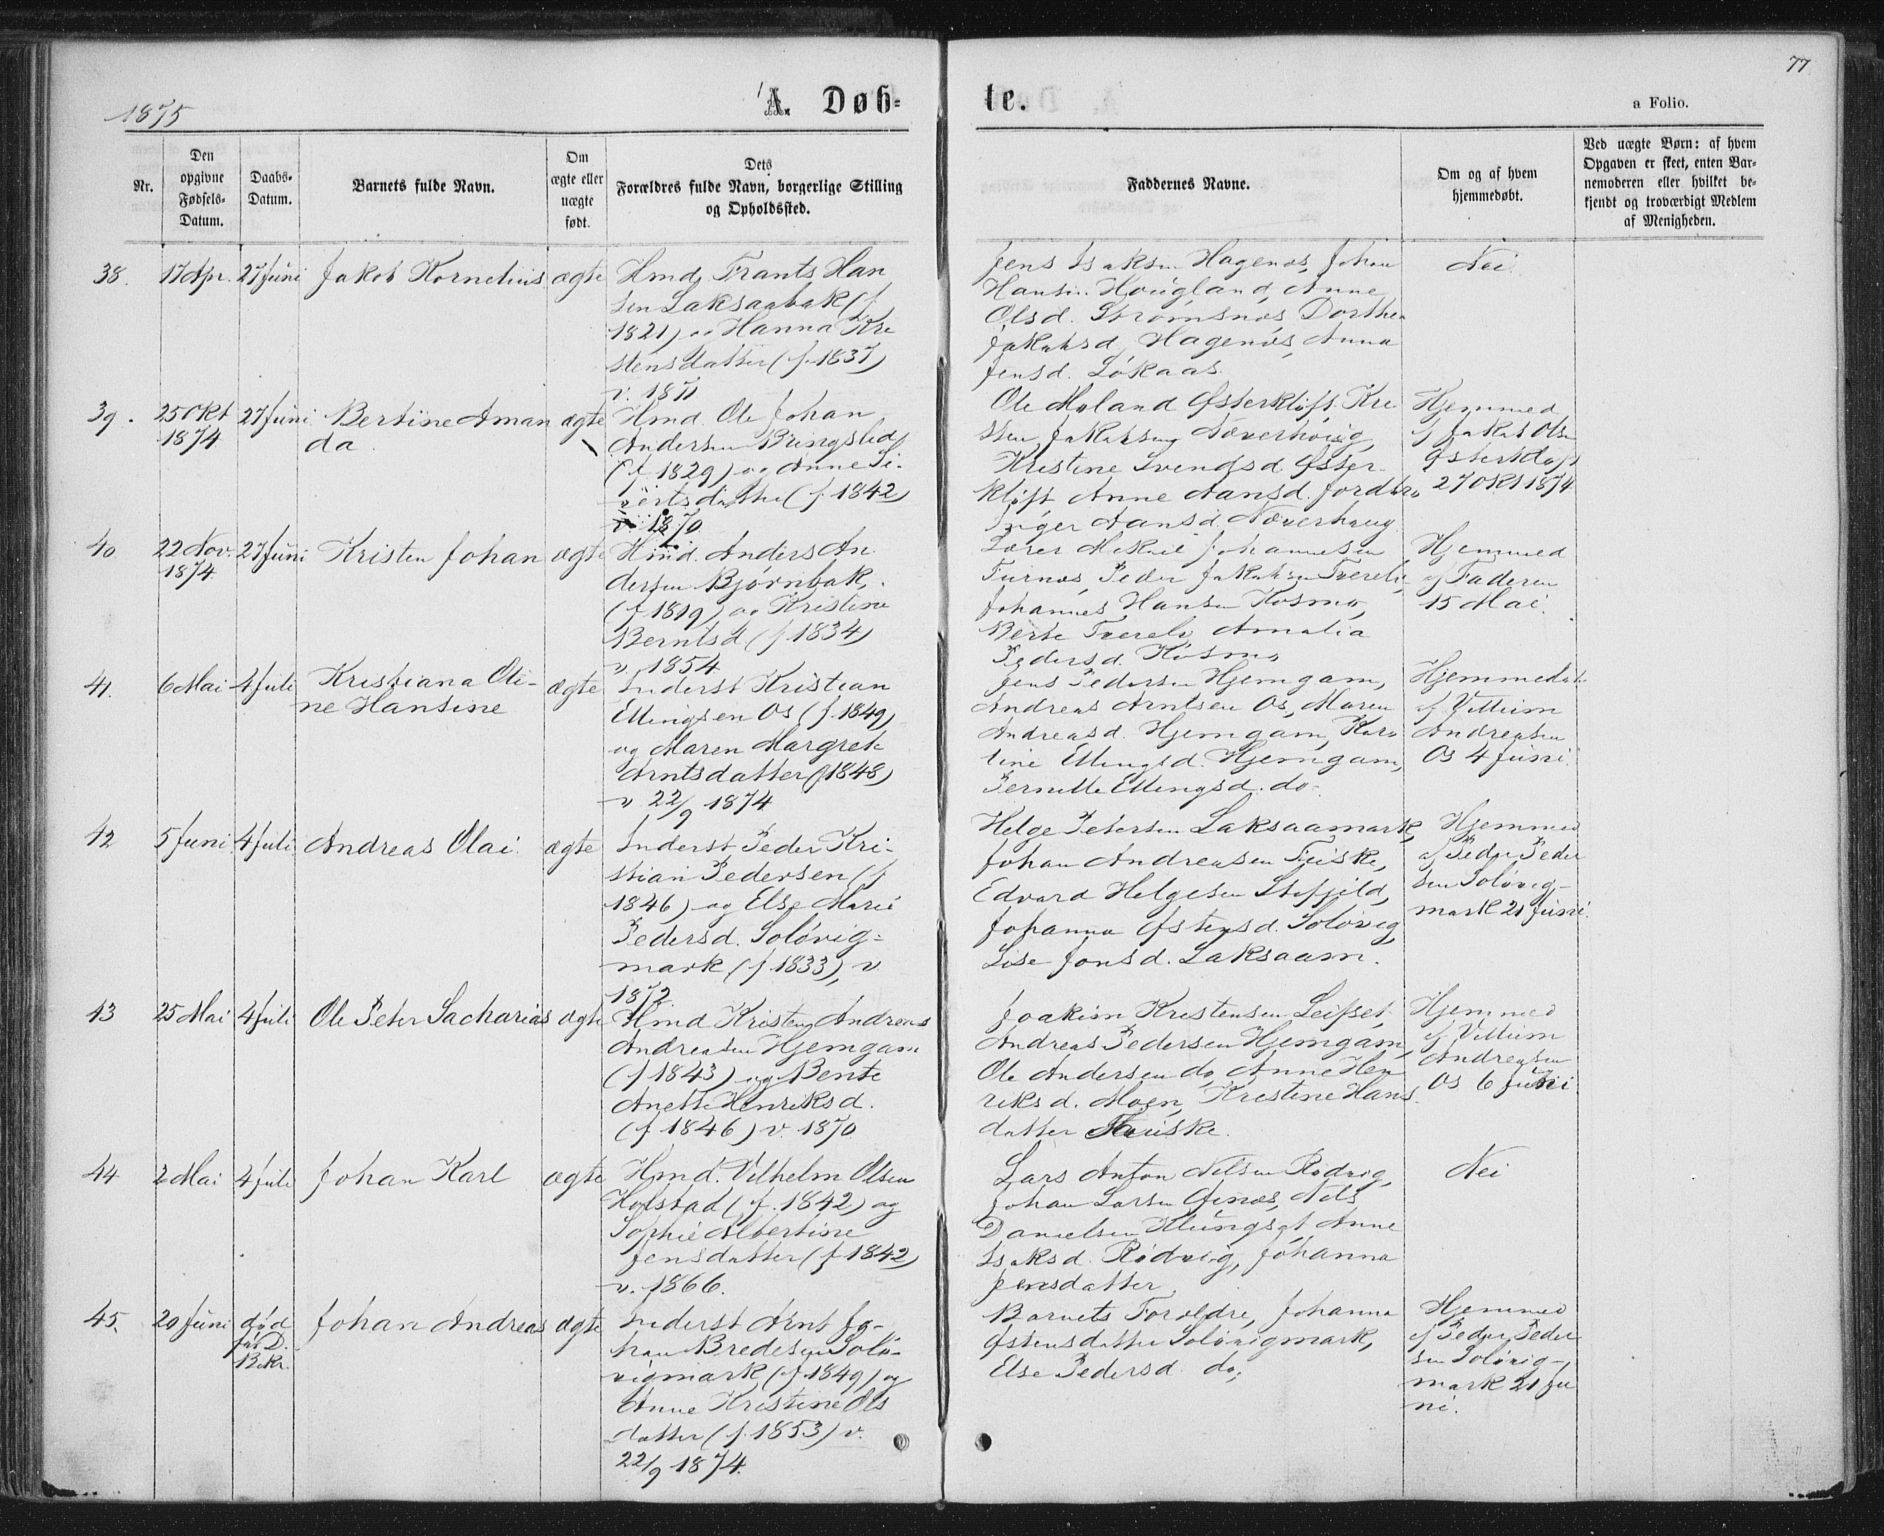 77
1875
A. Døb=
te.
a Folio.
Nr.
Den
opgivne
Fødsels-
Datum.
Daabs-
Datum.
Barnets fulde Navn.
Om
ægte eller
uægte
født.
Dets
Forældres fulde Navn, borgerlige Stilling
og Opholdssted.
Faddernes Navne.
Om og af hvem
hjemmedøbt.
Ved uægte Børn: af hvem
Opgaven er skeet, enten Bar-
nemoderen eller hvilket be-
kjendt og troværdigt Medlem
af Menigheden.
38. 17 Apr. 27 Juni Jakob Kornelius ægte
Hmd. Frants Han
sen Laksaabak (f
1821) og Hanna Kri
stensdatter (f. 1837)
v. 1871
Jens Isaksen Hagenæs, Johan
Hansen Hougland, Anne
Olsd. Strømsnæs, Dorthea
Jakobsd. Hagenæs, Anna
Jensd. Løkaas.
Nei.
39. 25 Okt 27 Juni Bertine Aman ægte
1874
da
Hmd. Ole Johan
Andersen
(f 1829) og Anne Si-
vertsdatter (f. 1842)
v 1870
Ole Moland Østerkløft, Kri
sten Jakobsen Næverhoug,
Kristine Svendsd. Øster-
kløft, Anne Aansd.
Inger Aansd. Næverhaug
Hjemmed
af Jakob Olsen
Østerkløft
27 Okt 1874
40 22 Nov. 27 Juni Kristen Johan ægte
1874
Hmd. Anders An
dersen Bjørnbak,
(f. 1819) og Kristine
Berntsd (f. 1834)
v. 1854
Lærer Johannesen
Furnæs, Peder Jakobsen Tverelv,
Johannes Hansen Kosmo,
Berte Tverelv, Amalia
Pedersd. Kosmo
Hjemmed
af Faderen
15 Mai.
41. 6 Mai 4 Juli Kristiana Oli- ægte
ne Hansine
Inderst Kristian
Ellingsen Os (f. 1849)
og Maren Margrete
Arntsdatter (f 1848)
v 22/9 1874
Jens Pedersen Hjemgam,
Andreas Arntsen Os, Maren
Andreasd. Hjemgam, Karo
line Ellingsd. Hjemgam,
Pernille Ellingsd. do.
Hjemmedøbt
af Villum
Andreasen
Os 4 Juni.
42 5 Juni 4 Juli Andreas Olai. ægte
Inderst Peder Kri-
stian Pedersen (f
1846) og Else Marie
Pedersd. Soløvig-
mark (f. 1833), v
1872.
Helge Petersen Laksaamark,
Johan Andreasen Feiske,
Edvard Helgesen Stifjeld,
Johanna Østensd. Soløvig,
Lise Jonsd. Laksaam.
Hjemmed
af Peder Peder
sen Soløvig-
mark 21 Juni.
43 25 Mai 4 Juli Ole Peter Sacharias ægte
Hmd. Kristen Andreas
Andreasen Hjemgam
(f 1843) og Bente
Anette Henriksd.
(f 1846) v. 1870
Joakim Kristensen Leifset,
Andreas Pedersen Hjemgam,
Ole Andersen do, Anne Hen
riksd. Moen, Kristine Hans
datter Fauske.
Hjemmed
af Villum
Andreasen
Os 6 Juni
44 2 Mai 4 Juli Johan Karl ægte
Hmd. Vilhelm Olsen
Holstad (f. 1842) og
Sophie Albertine
Jensdatter (f. 1842)
v. 1866.
Lars Anton Nilsen Rødvig,
Johan Larsen Nils
Danielsen Klungset, Anne
Isaksd. Rødvig, Johanna
Jensdatter
Nei
45. 20 Juni død Johan Andreas ægte
før D.
Bekr.
Inderst Arnt Jo-
han Bredesen Solø-
vigmark (f. 1849) og
Anne Kristine Ols
datter (f. 1853) v.
22/9 1874.
Barnets Forældre, Johanna
Østensdatter Soløvigmark,
Else Pedersd. do,
Hjemmed
af Peder Peder
sen Soløvig-
mark 21 Ju
ni.